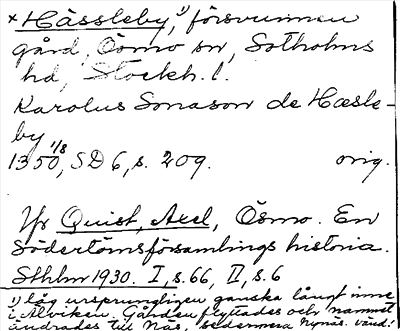 × Hässleby,¹⁾ försvunnen
gård, Ösmo sn, Sotholms
hd, Stockh. l.
Karolus Sonason de Hæsle-
by
1350 1/8, SD 6, s. 209. orig.
Jfr Quist, Axel, Ösmo. En
Södertörnsförsamlings historia.
Sthlm 1930. I, s. 66, II, s. 6
1) Låg ursprungligen ganska långt inne
i Älviken. Gården flyttades och namnet
ändrades till Näs, sedermera Nynäs. Vänd!